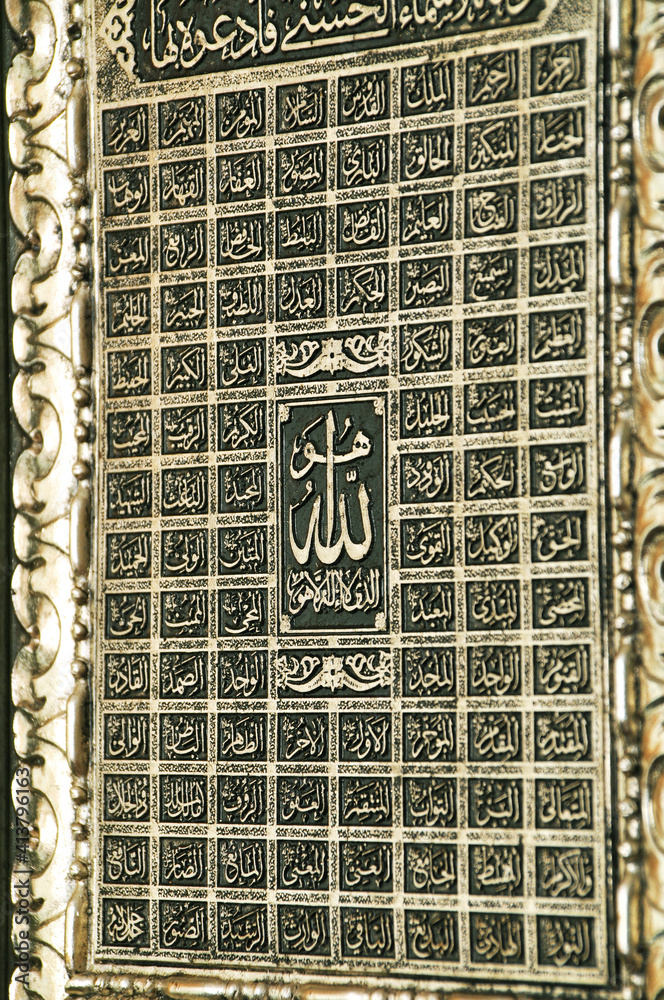 الأسماء الحسنى فادعوه بها
الرحمن الرحيم الملك القدوس السلام المؤمن المهيمن العزيز
الجبار المتكبر الخالق البارئ المصور الغفار القهار الوهاب
الرزاق الفتاح العليم القابض الباسط الخافض الرافع المعز
المذل السميع البصير الحكم العدل اللطيف الخبير الحليم
العظيم الغفور الشكور العلي الكبير الحفيظ
المقيت الحسيب الجليل الكريم الرقيب المجيب
هو
الله
الذي لا إله إلا هو
الواسع الحكيم الودود المجيد الباعث الشهيد
الحق الوكيل القوي المتين الولي الحميد
المحصي المبدئ المعيد المحيي المميت الحي
القيوم الواجد الماجد الواحد الصمد القادر
المقتدر المقدم المؤخر الأول الآخر الظاهر الباطن الوالي
المتعالي البر التواب المنتقم العفو الرؤوف مالك الملك ذو الجلال
والإكرام المقسط الجامع الغني المغني المانع الضار النافع
النور الهادي البديع الباقي الوارث الرشيد الصبور جل جلاله
Adobe Stock | #413796163